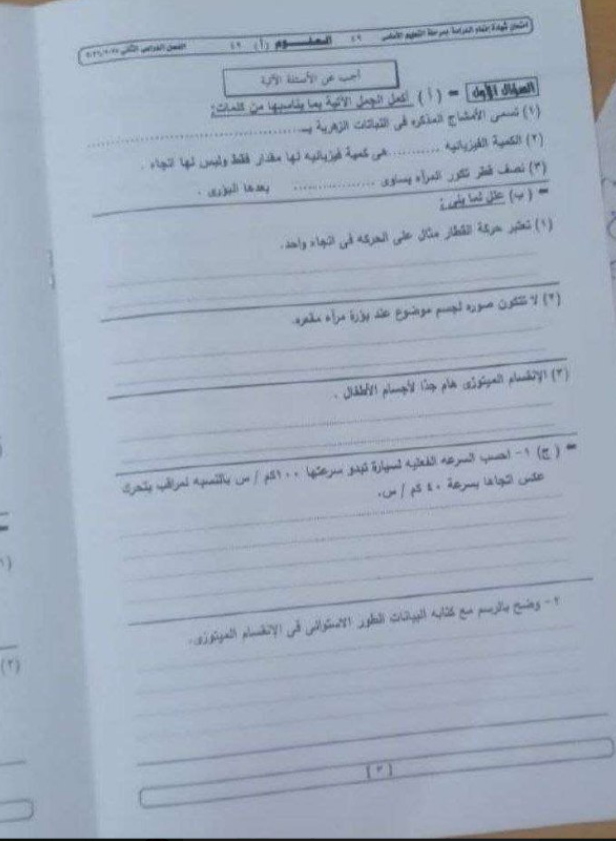 امتحان شهادة إتمام الدراسة بمرحلة التعليم الأساسى ٤٩ العلـــوم (أ) ٤٩ الفصل الدراسى الثانى
أجب عن الأسئلة الآتية
السؤال الأول = ( أ ) أكمل الجمل الآتية بما يناسبها من كلمات:
(١) تسمى الأمشاج المذكره فى النباتات الزهرية بـ............................
(٢) الكمية الفيزيائيه .......... هى كمية فيزيائيه لها مقدار فقط وليس لها اتجاه .
(٣) نصف قطر تكور المرآه يساوى ................ بعدها البؤرى .
= ( ب) علل لما يلى :
(١) تعتبر حركة القطار مثال على الحركه فى اتجاه واحد.
(٢) لا تتكون صوره لجسم موضوع عند بؤرة مرآه مقعره.
(٣) الإنقسام الميتوزى هام جدًا لأجسام الأطفال .
= ( ج) ١- احسب السرعه الفعليه لسيارة تبدو سرعتها ١٠٠كم / س بالنسبه لمراقب يتحرك
عكس اتجاها بسرعة ٤٠ كم / س.
٢- وضح بالرسم مع كتابه البيانات الطور الاستوائى فى الإنقسام الميتوزى.
[ ٣ ]
(٢)